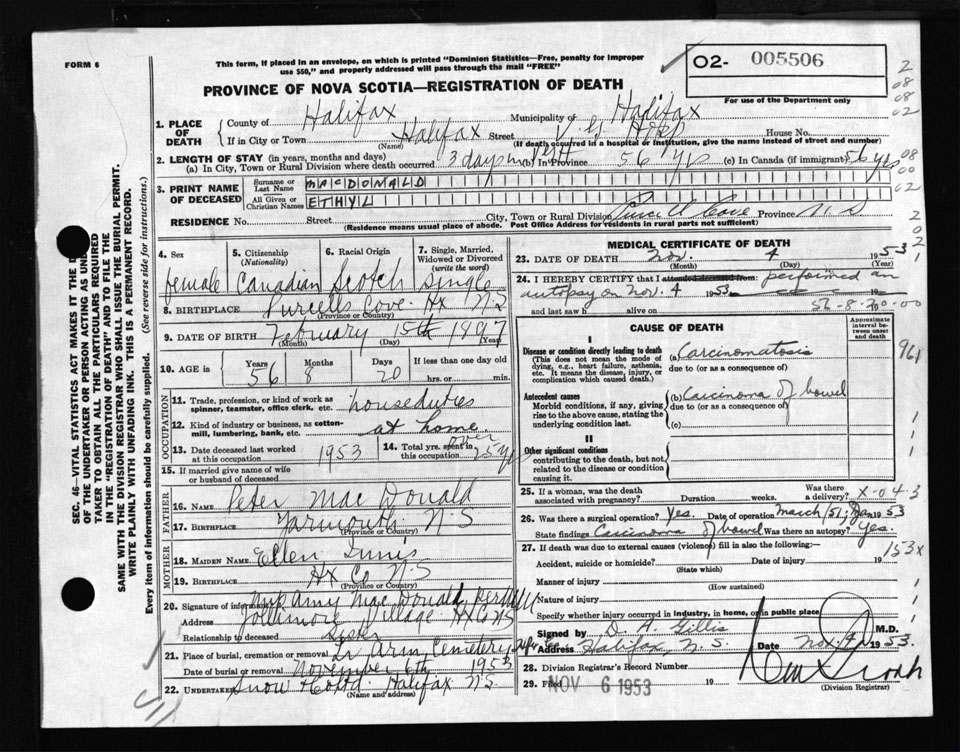 FORM 6
This form, if placed in an envelope, on which is printed "Dominion Statistics—Free, penalty for improper
use $50," and properly addressed will pass through the mail "FREE"
O2- 005506
For use of the Department only
PROVINCE OF NOVA SCOTIA—REGISTRATION OF DEATH
2
08
08
02
08
00
02
2
0
2
1. PLACE OF DEATH
County of Halifax Municipality of Halifax
If in City or Town Halifax Street V. G. Hosp House No.
(Name) (If death occurred in a hospital or institution, give the name instead of street and number)
2. LENGTH OF STAY (in years, months and days)
(a) In City, Town or Rural Division where death occurred 3 days (b) In Province 56 yrs (c) In Canada (if immigrant) 56 yrs
3. PRINT NAME OF DECEASED
Surname or Last Name MACDONALD
All Given or Christian Names ETHYL
RESIDENCE No. Street City, Town or Rural Division Cove Province N.S
(Residence means usual place of abode. Post Office Address for residents in rural parts not sufficient)
4. Sex female
5. Citizenship (Nationality) Canadian
6. Racial Origin Scotch
7. Single, Married, Widowed or Divorced (write the word) Single
8. BIRTHPLACE Purcells Cove Hx N.S
(Province or Country)
9. DATE OF BIRTH February 15th 1897
(Month) (Day) (Year)
10. AGE in Years 56 Months 8 Days 20 If less than one day old
hrs. or min.
OCCUPATION
11. Trade, profession, or kind of work as spinner, teamster, office clerk, etc. houseduties
12. Kind of industry or business, as cotton-mill, lumbering, bank, etc. at home
13. Date deceased last worked at this occupation 1953
14. Total yrs. spent in this occupation over 25 yrs
15. If married give name of wife or husband of deceased
FATHER
16. NAME Peter MacDonald
17. BIRTHPLACE Yarmouth N.S
(Province or Country)
MOTHER
18. MAIDEN NAME Ellen Innis
19. BIRTHPLACE Hx Co N.S
(Province or Country)
20. Signature of informant Amy MacDonald
Address Jollimore Village Hx Co NS
Relationship to deceased Sister
21. Place of burial, cremation or removal Cemetery
Date of burial or removal November 6th 1953
22. Undertaker Snow Halifax N.S
(Name and address)
SEC. 46—VITAL STATISTICS ACT MAKES IT THE
OF THE UNDERTAKER OR PERSON ACTING AS
TAKER TO OBTAIN ALL THE PARTICULARS REQUIRED
IN THE "REGISTRATION OF DEATH" AND TO FILE THE
SAME WITH THE DIVISION REGISTRAR WHO SHALL ISSUE THE BURIAL PERMIT.
WRITE PLAINLY WITH UNFADING INK. THIS IS A PERMANENT RECORD.
Every item of information should be carefully supplied. (See reverse side for instructions.)
MEDICAL CERTIFICATE OF DEATH
23. DATE OF DEATH Nov. 4 1953
(Month) (Day)
24. I HEREBY CERTIFY that I attended deceased from performed an
autopsy on Nov. 4 1953
and last saw h alive on 19
56-8-20-00
CAUSE OF DEATH
Approximate interval between onset and death
I
Disease or condition directly leading to death
(This does not mean the mode of dying, e.g., heart failure, asthenia, etc. It means the disease, injury, or complication which caused death.)
(a) Carcinomatosis
due to (or as a consequence of)
Antecedent causes
Morbid conditions, if any, giving rise to the above cause, stating the underlying condition last.
(b) Carcinoma of bowel
due to (or as a consequence of)
(c)
II
Other significant conditions
contributing to the death, but not related to the disease or condition causing it.
25. If a woman, was the death associated with pregnancy? Duration weeks. Was there a delivery? X-043
26. Was there a surgical operation? Yes. Date of operation March/51; 1953
State findings Carcinoma of bowel Was there an autopsy? Yes.
27. If death was due to external causes (violence) fill in also the following:— 153x
Accident, suicide or homicide? Date of injury 19
(State which)
Manner of injury
(How sustained)
Nature of injury
Specify whether injury occurred in industry, in home, or in public place
Signed by D. A. Gillis M.D.
Address Halifax, N. S. Date Nov. 1953.
28. Division Registrar's Record Number
29. Filed NOV 6 1953 19
(Division Registrar)